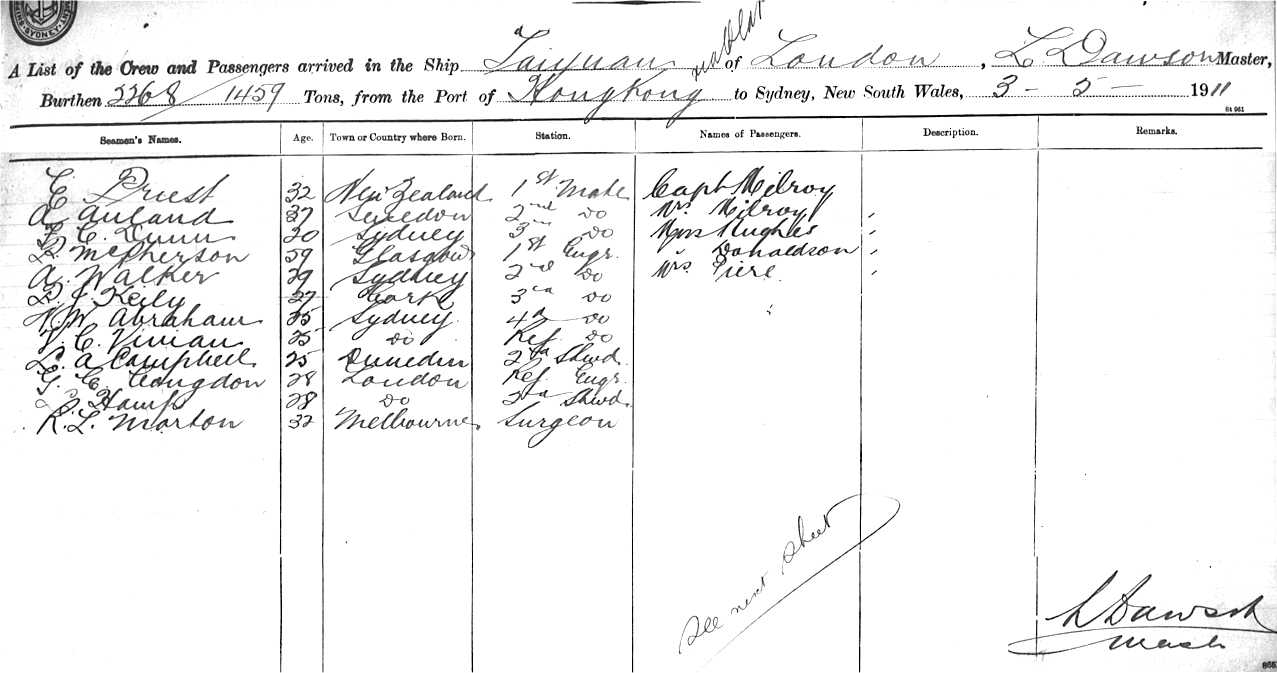 SYDNEY
A List of the Crew and Passengers arrived in the Ship Taiyuan of London, L Dawson Master,
Burthen 2268/1459 Tons, from the Port of Hongkong to Sydney, New South Wales, 3 - 5 - 1911
Seamen's Names. Age. Town or Country where Born. Station. Names of Passengers. Description. Remarks.
E Priest 32 New Zealand 1st Mate Capt Milroy
A. Auland 37 Swedon 2nd do Mrs Milroy "
F. C. Dunn 20 Sydney 3rd do Mrs Hughes "
D. McPherson 59 Glasgow 1st Engr. " Donaldson "
A. Walker 29 Sydney 2nd do Mrs Piere "
D. J. Keily 27 Cork 3rd do
N. W. Abraham 25 Sydney 4th do
V. C. Vivian 25 do Ref do
L. A Campbell 25 Dunedin 2nd Stwd.
G. C. Congdon 28 London Ref. Engr.
Hamp 28 do 2nd Stwd.
R. L. Morton 32 Melbourne Surgeon
See next sheet
L Dawson
Mast